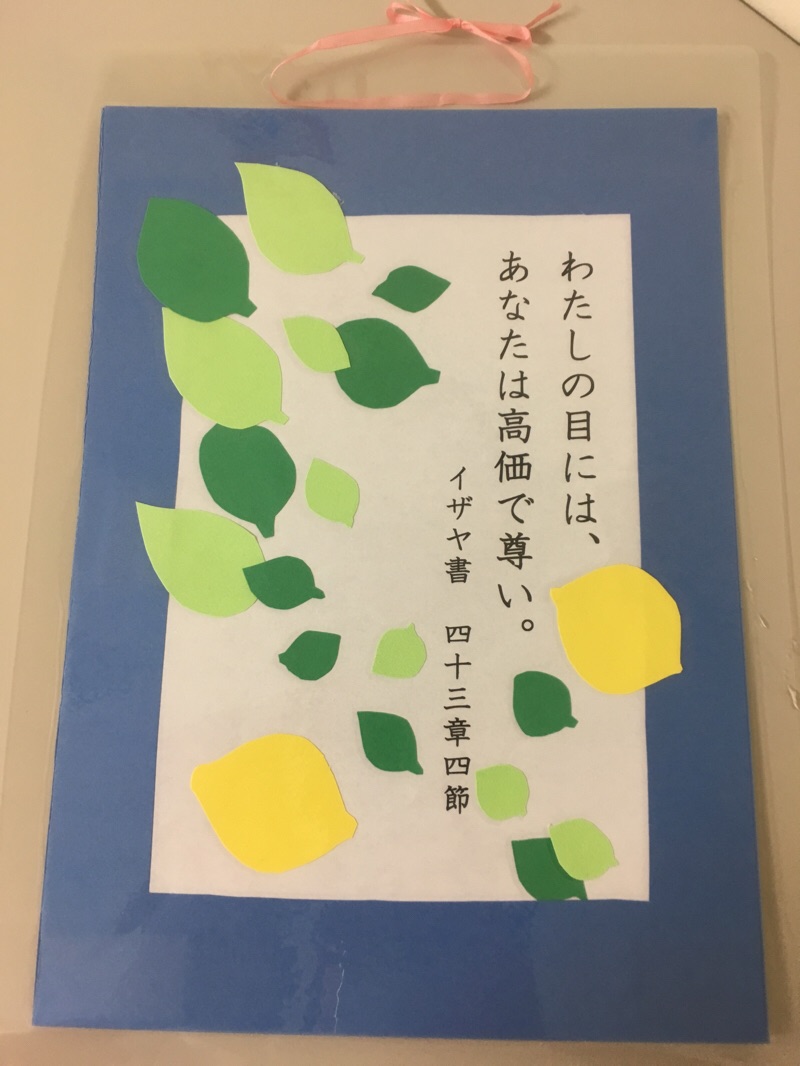 わたしの目には、
あなたは高価で尊い。
イザヤ書　四十三章四節